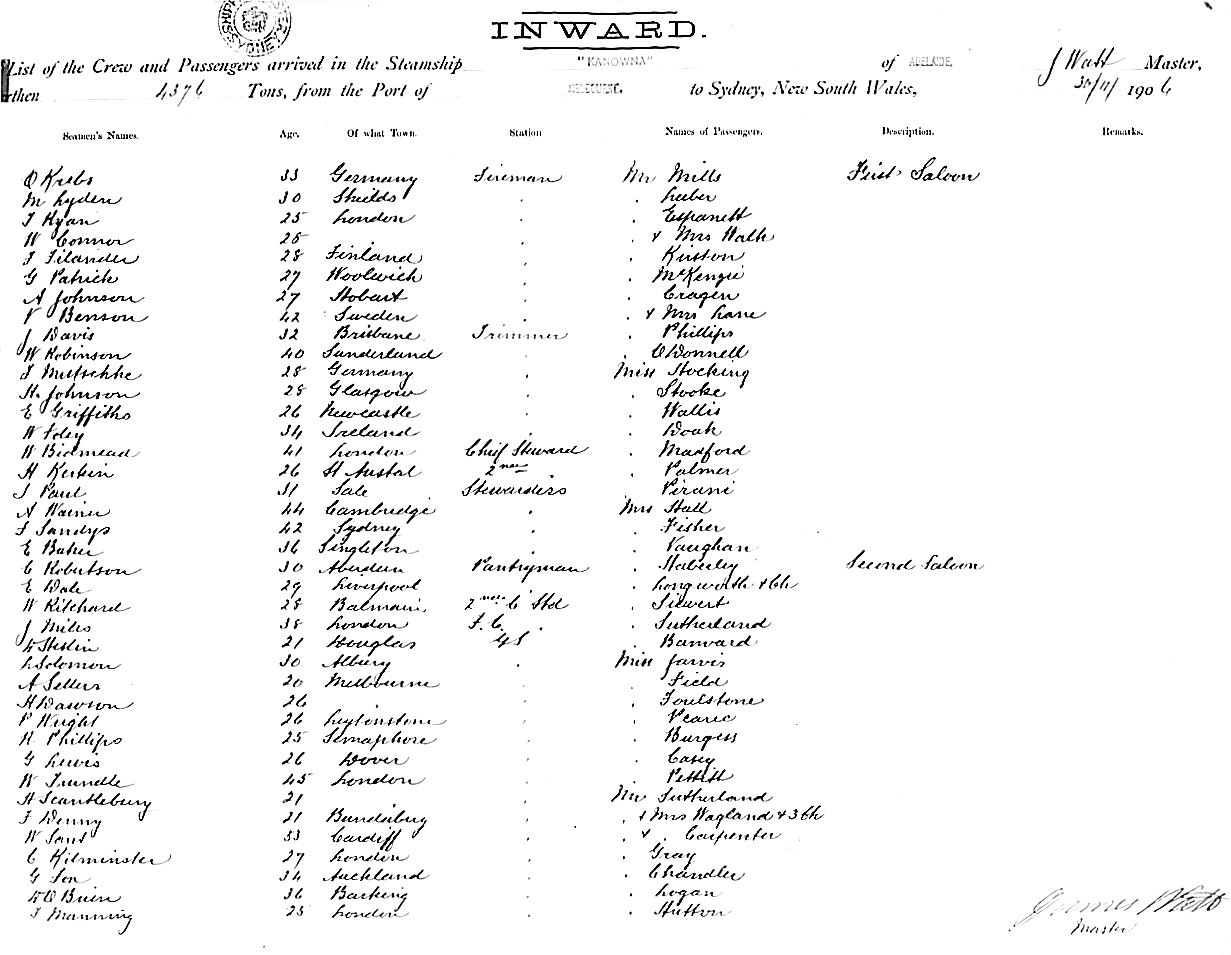 SHIPP SYDNEY
INWARD.
List of the Crew and Passengers arrived in the Steamship "KANOWNA" of ADELAIDE, J Watt Master,
then 4376 Tons, from the Port of MELBOURNE. to Sydney, New South Wales, 30/11/ 1906
Seamen's Names. Age. Of what Town. Station Names of Passengers. Description. Remarks.
O Krebs 33 Germany Fireman Mr Mills First Saloon
M Lyden 30 Shields . . Leeber
T Ryan 25 London . .
W Connor 25 . . + Mrs Walk
F Filander 28 Finland . .
G Patrick 27 Woolwich . . McKenzie
A Johnson 27 Hobart . . Cragen
V Benson 42 Sweden . . + Mrs Lane
J Davis 32 Brisbane Trimmer . Phillips
W Robinson 40 Sunderland . . O'Donnell
F Mutschke 28 Germany . Miss Stocking
H. Johnson 28 Glasgow . . Stooke
E Griffiths 26 Newcastle . . Wallis
W Foley 34 Ireland . . Doak
W Bidmead 41 London Chief Steward . Madford
H Kerkin 26 St Austal 2nd . Palmer
S Paul 31 Sale Stewardess . Pirani
A Warner 44 Cambridge . Mrs Hall
F Sandys 42 Sydney . . Fisher
E Baker 36 Singleton . . Vaughan
C Robertson 30 Aberdeen Pantryman . Haberley Second Saloon
E Dale 29 Liverpool . . Longworth + Ch
W Kitchard 28 Balmain 2nd C Std . Siewert
J Miles 38 London F. C. . . Sutherland
21 Douglas GS . Banward
L Solomon 30 Albury . Miss Jarvis
A Sellers 20 Melbourne . . Field
H Dawson 26 . . . Foulstone
P Wright 26 Leytonstone . . Pearce
H Phillips 25 Semaphore . . Burgess
G Lewis 26 Dover . . Casey
W Trundle 45 London . . Pettitt
H Scantlebury 21 . . Mr Sutherland
F Denny 21 Bundaberg . . + Mrs Wagland + 3 Ch
W Sans 33 Cardiff . . + . Carpenter
C Kilminster 27 London . . Gray
G Son 34 Auckland . . Chandler
D O'Brien 36 Barking . . Logan
F Manning 25 London . . Hutton
James Watt
Master